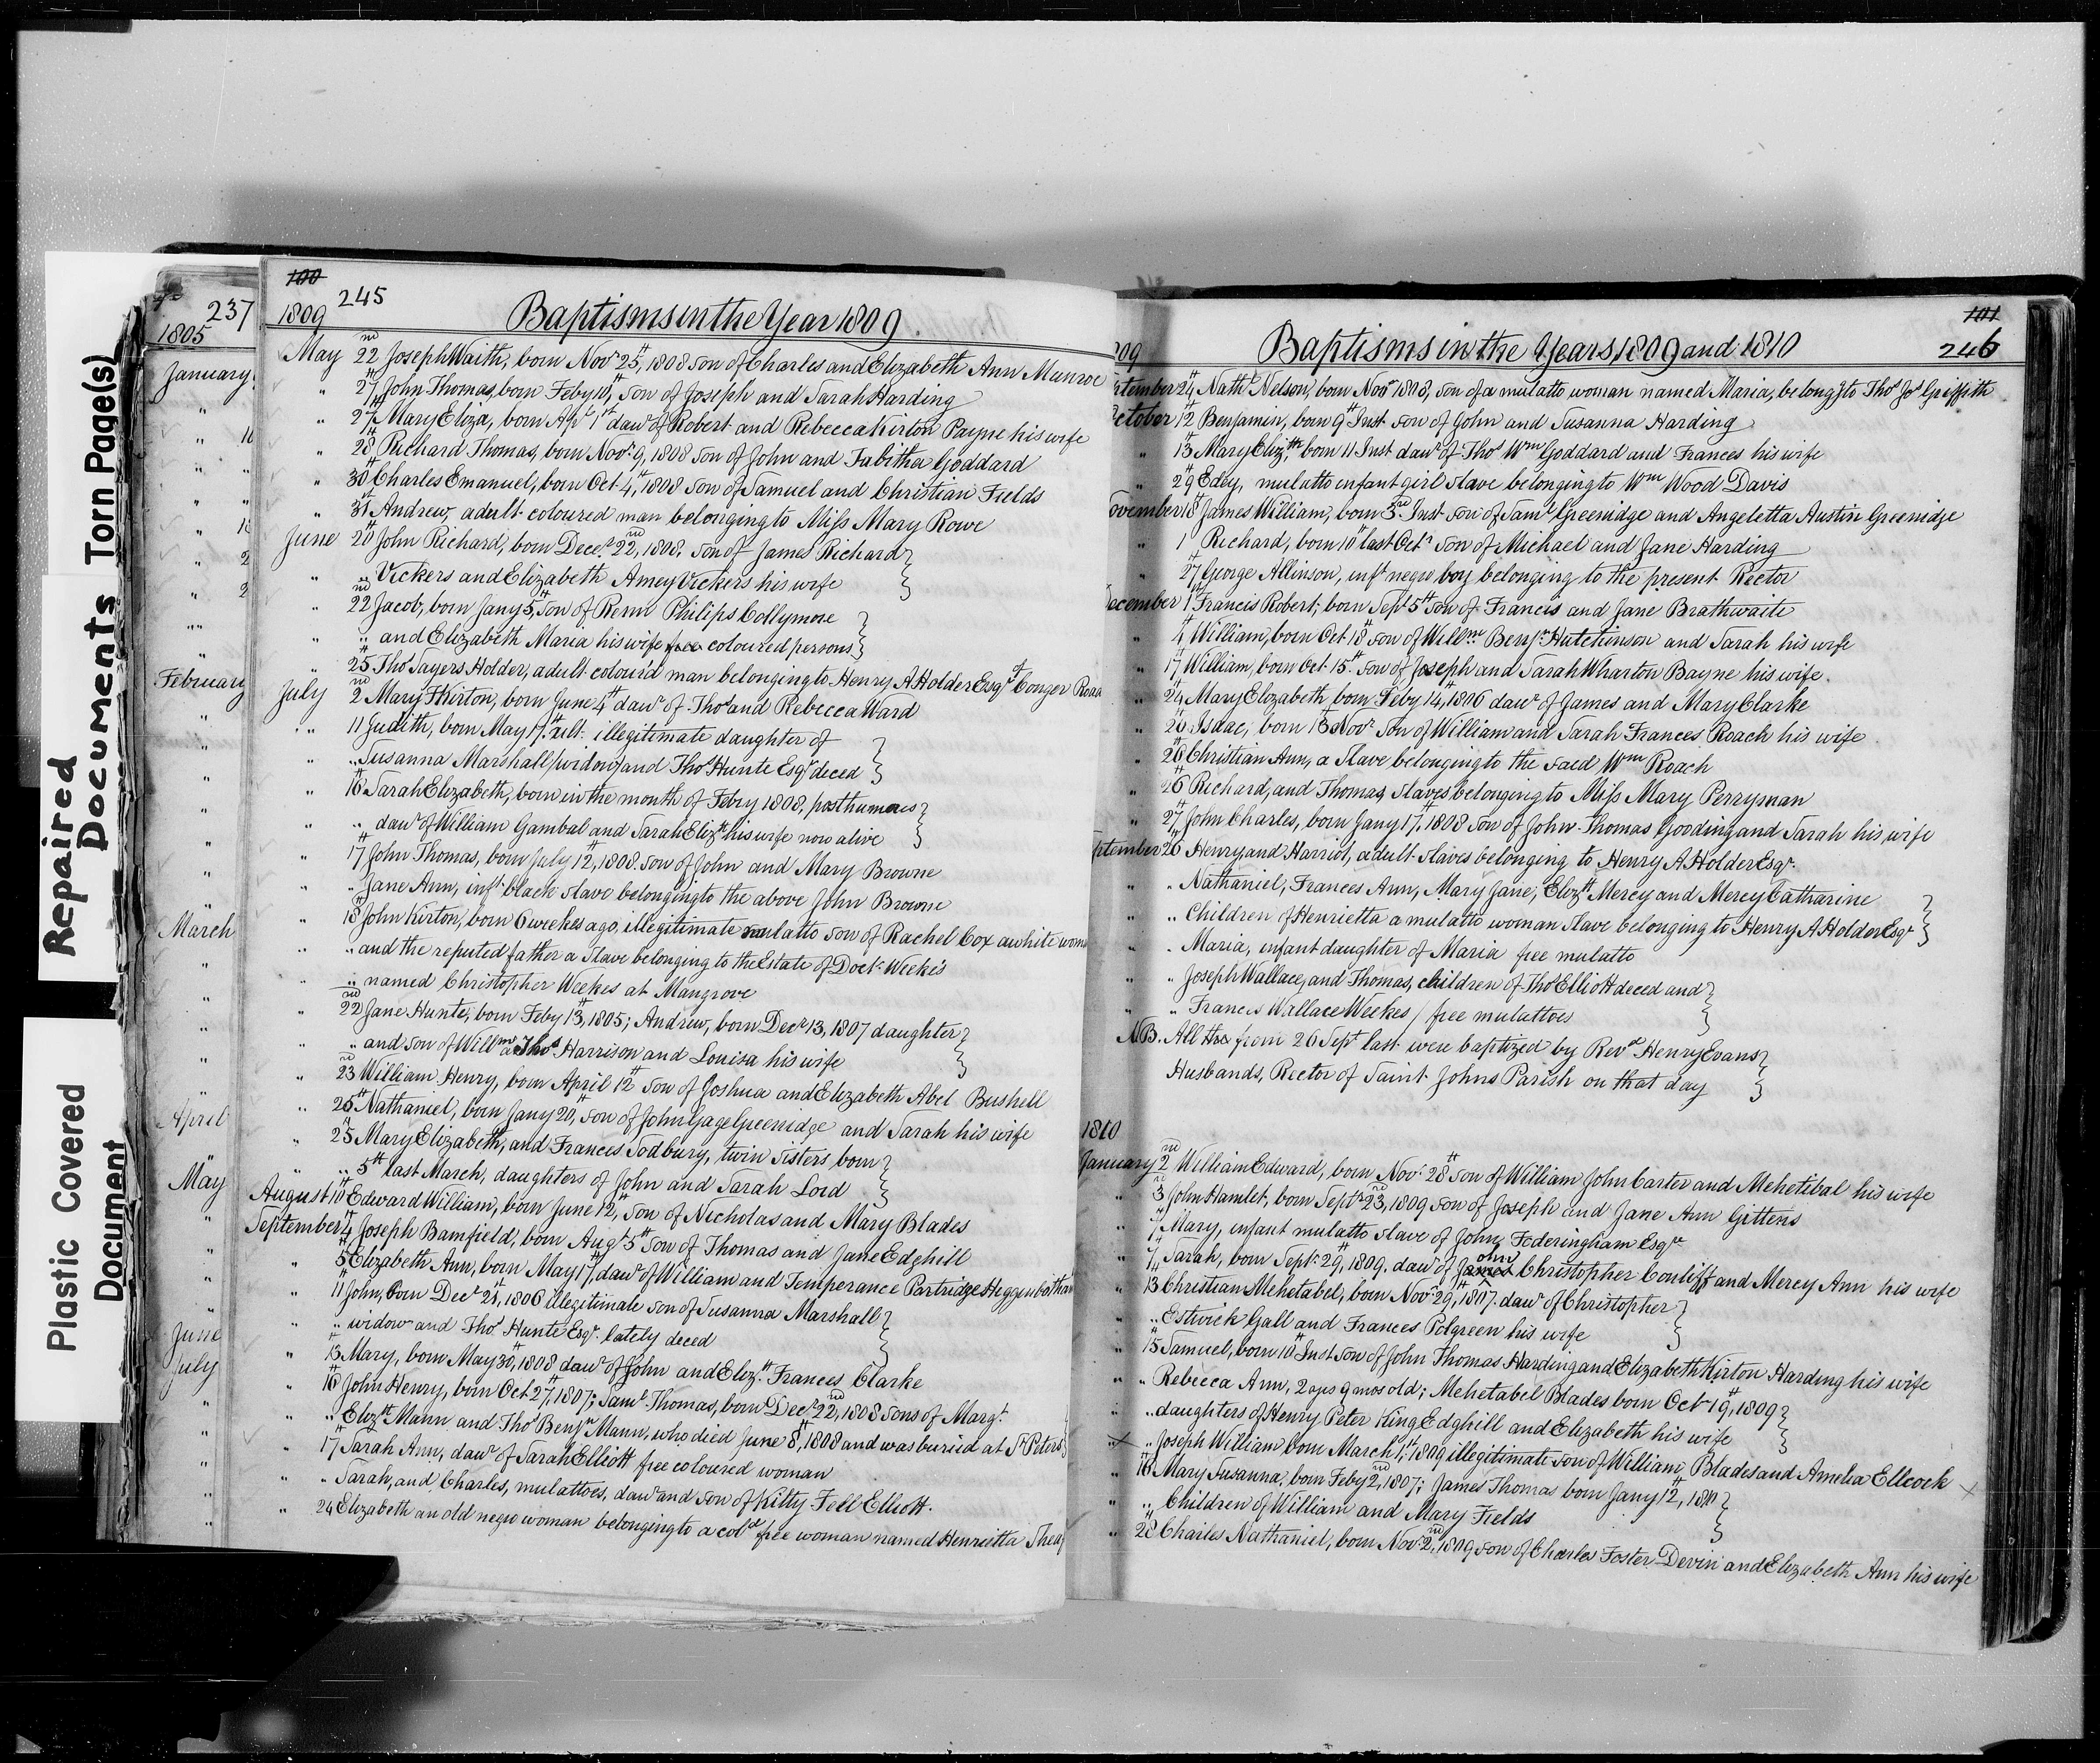 Repaired Documents Torn Page(s)
Plastic Covered Document
237
1805
January
February
March
April
May
June
July
100
245
1809
Baptisms in the Year 1809.
May 22nd Joseph Waith, born Novr 25th, 1808 son of Charles and Elizabeth Ann Munroe
" 27th John Thomas, born Feby 10th, son of Joseph and Sarah Harding
" 27th Mary Eliza, born Apl 1st dawr of Robert and Rebecca Kirton Payne his wife
" 28th Richard Thomas, born Novr 9, 1808 son of John and Tabitha Goddard
" 30th Charles Emanuel, born Oct 4th, 1808 son of Samuel and Christian Fields
" 31st Andrew, adult coloured man belonging to Miss Mary Rowe
June 20th John Richard, born Decer 22nd, 1808. son of James Richard }
" " Vickers and Elizabeth Amey Vickers his wife }
" 22nd Jacob, born Jany 5th, son of Renn Philips Collymore }
" " and Elizabeth Maria his wife free coloured persons }
" 25th Thos Sayers Holder, adult colour'd man belonging to Henry A Holder Esqr of Conger Road
July 2nd Mary Thirton, born June 4th dawr of Thos and Rebecca Ward
" 11 Judith, born May 17th ult. illegitimate daughter of }
" " Susanna Marshall /widow/ and Thos Hunte Esqr deced }
" 16th Sarah Elizabeth, born in the month of Febry 1808, posthumous }
" " dawr of William Gambal and Sarah Elizth his wife now alive }
" 17th John Thomas, born July 12th, 1808 son of John and Mary Browne
" " Jane Ann, inft black slave belonging to the above John Browne
" 18th John Kirton, born 6 weekes ago, illegitimate mulatto son of Rachel Cox a white woman
" " and the reputed father a Slave belonging to the Estate of Doctr Weekes
" " named Christopher Weekes at Mangrove
" 22nd Jane Hunte, born Feby 13th, 1805; Andrew, born Decr 13, 1807 daughter }
" " and son of Willm Thos Harrison and Louisa his wife }
" 23rd William Henry, born April 12th son of Joshua and Elizabeth Abel Bushell
" 25th Nathaniel, born Jany 20, son of John Gage Greenidge and Sarah his wife
" 25th Mary Elizabeth, and Frances Sodbury, twin sisters born }
" " 5th last March, daughters of John and Sarah Lord }
August 10th Edward William, born June 12th, son of Nicholas and Mary Blades
September 4th Joseph Bamfield, born Augt 5th son of Thomas and Jane Edghill
" 5th Elizabeth Ann, born May 17th, dawr of William and Temperance Partridge Heggenbotham
" 11th John, born Decr 21st, 1806 illegitimate son of Susanna Marshall }
" " widow and Thos Hunte Esqr. lately deced }
" 13th Mary, born May 30th, 1808 dawr of John and Elizth Frances Clarke
" 16th John Henry, born Oct 27, 1807; Saml Thomas, born Decr 22nd, 1808 sons of Margt
" " Elizth Mann and Thos Benjn Mann, who died June 8th, 1808 and was buried at St Peters }
" 17th Sarah Ann, dawr of Sarah Elliott free coloured woman
" " Sarah, and Charles, mulattoes, dawr and son of Kitty Fell Elliott.
" 24 Elizabeth an old negro woman belonging to a cold free woman named Henrietta
101
246
09
Baptisms in the Years 1809 and 1810
tember 24th Nathl Nelson, born Novr 1808, son of a mulatto woman named Maria, belongg to Thos Jos Griffith
October 12th Benjamin, born 9th Inst son of John and Susanna Harding
" 13th Mary Elizth, born 11 Inst dawr of Thos Wm Goddard and Frances his wife
" 29th Edey, mulatto infant girl slave belonging to Wm Wood Davis
November 18th James William, born 3rd Inst son of Saml Greenidge and Angeletta Austin Greenidge
" 1 Richard, born 10th last Octr son of Michael and Jane Harding
" 27th George Allinson, inft negro boy belonging to the present Rector
December 1st Francis Robert, born Sept 5th son of Francis and Jane Brathwaite
" 4th William, born Oct 18th son of Willm Benjn Hutchinson and Sarah his wife
" 17th William, born Oct 15th. son of Joseph and Sarah Wharton Bayne his wife.
" 24th Mary Elizabeth, born Feby 14th, 1806 dawr of James and Mary Clarke
" 26th Isaac, born 18th Novr son of William and Sarah Frances Roach his wife
" 26th Christian Ann, a Slave belonging to the said Wm Roach
" 26th Richard, and Thomas, slaves belonging to Miss Mary Perryman
" 27th John Charles, born Jany 17th, 1808 son of John Thomas Gooding and Sarah his wife
ptember 26th Henry, and Harriot, adult slaves belonging to Henry A Holder Esqr.
" " Nathaniel, Frances Ann, Mary Jane, Elizth Mercy and Mercy Catharine }
" " Children of Henrietta a mulatto woman slave belonging to Henry A Holder Esqr }
" " Maria, infant daughter of Maria free mulatto
" " Joseph Wallace, and Thomas, children of Thos Elliott deced and }
" " Frances Wallace Weekes / free mulattoes }
NB. All these from 26 Sept last were baptized by Revd Henry Evans }
Husbands, Rector of Saint Johns Parish on that day }
1810
January 2nd William Edward, born Novr 28th son of William John Carter and Mehetibal his wife
" 3rd John Hamlet, born Septr 23rd, 1809 son of Joseph and Jane Ann Gittens
" 7th Mary, infant mulatto slave of John Federingham Esqre
" 7th Sarah, born Septr 29th, 1809. dawr of James ohn Christopher Conliff and Mercy Ann his wife
" 13th Christian Mehetabel, born Novr 29th, 1807. dawr of Christopher }
" " Estwick Gall and Frances Polgreen his wife }
" 15th Samuel, born 10th Inst son of John Thomas Harding and Elizabeth Kirton Harding his wife
" " Rebecca Ann, 2 ags 9 mos old; Mehetabel Blades born Octr 19th, 1809 }
" " daughters of Henry Peter King Edghill and Elizabeth his wife }
" " Joseph William born March 1st, 1809 illegitimate son of William Blades and Amelia Ellcock ×
" 16th Mary Susanna, born Feby 2nd, 1807; James Thomas born Jany 12th, 1810 }
" " Children of William and Mary Fields }
" 28th Charles Nathaniel, born Novr 2nd, 1809 son of Charles Foster Devin and Elizabeth Ann his wife